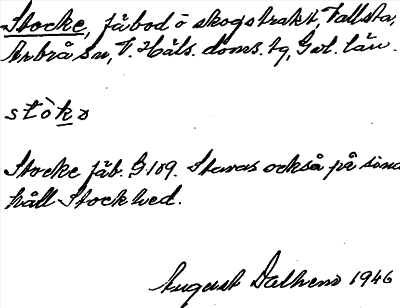 Stocke, fäbod o skogstrakt, Vallsta,
Arbrå sn, V. Häls. doms. tg, Gvl. län.
stòkə
Stocke fäb. G.109. Stavas också på sina
håll Stockhed.
August Dalhem 1946